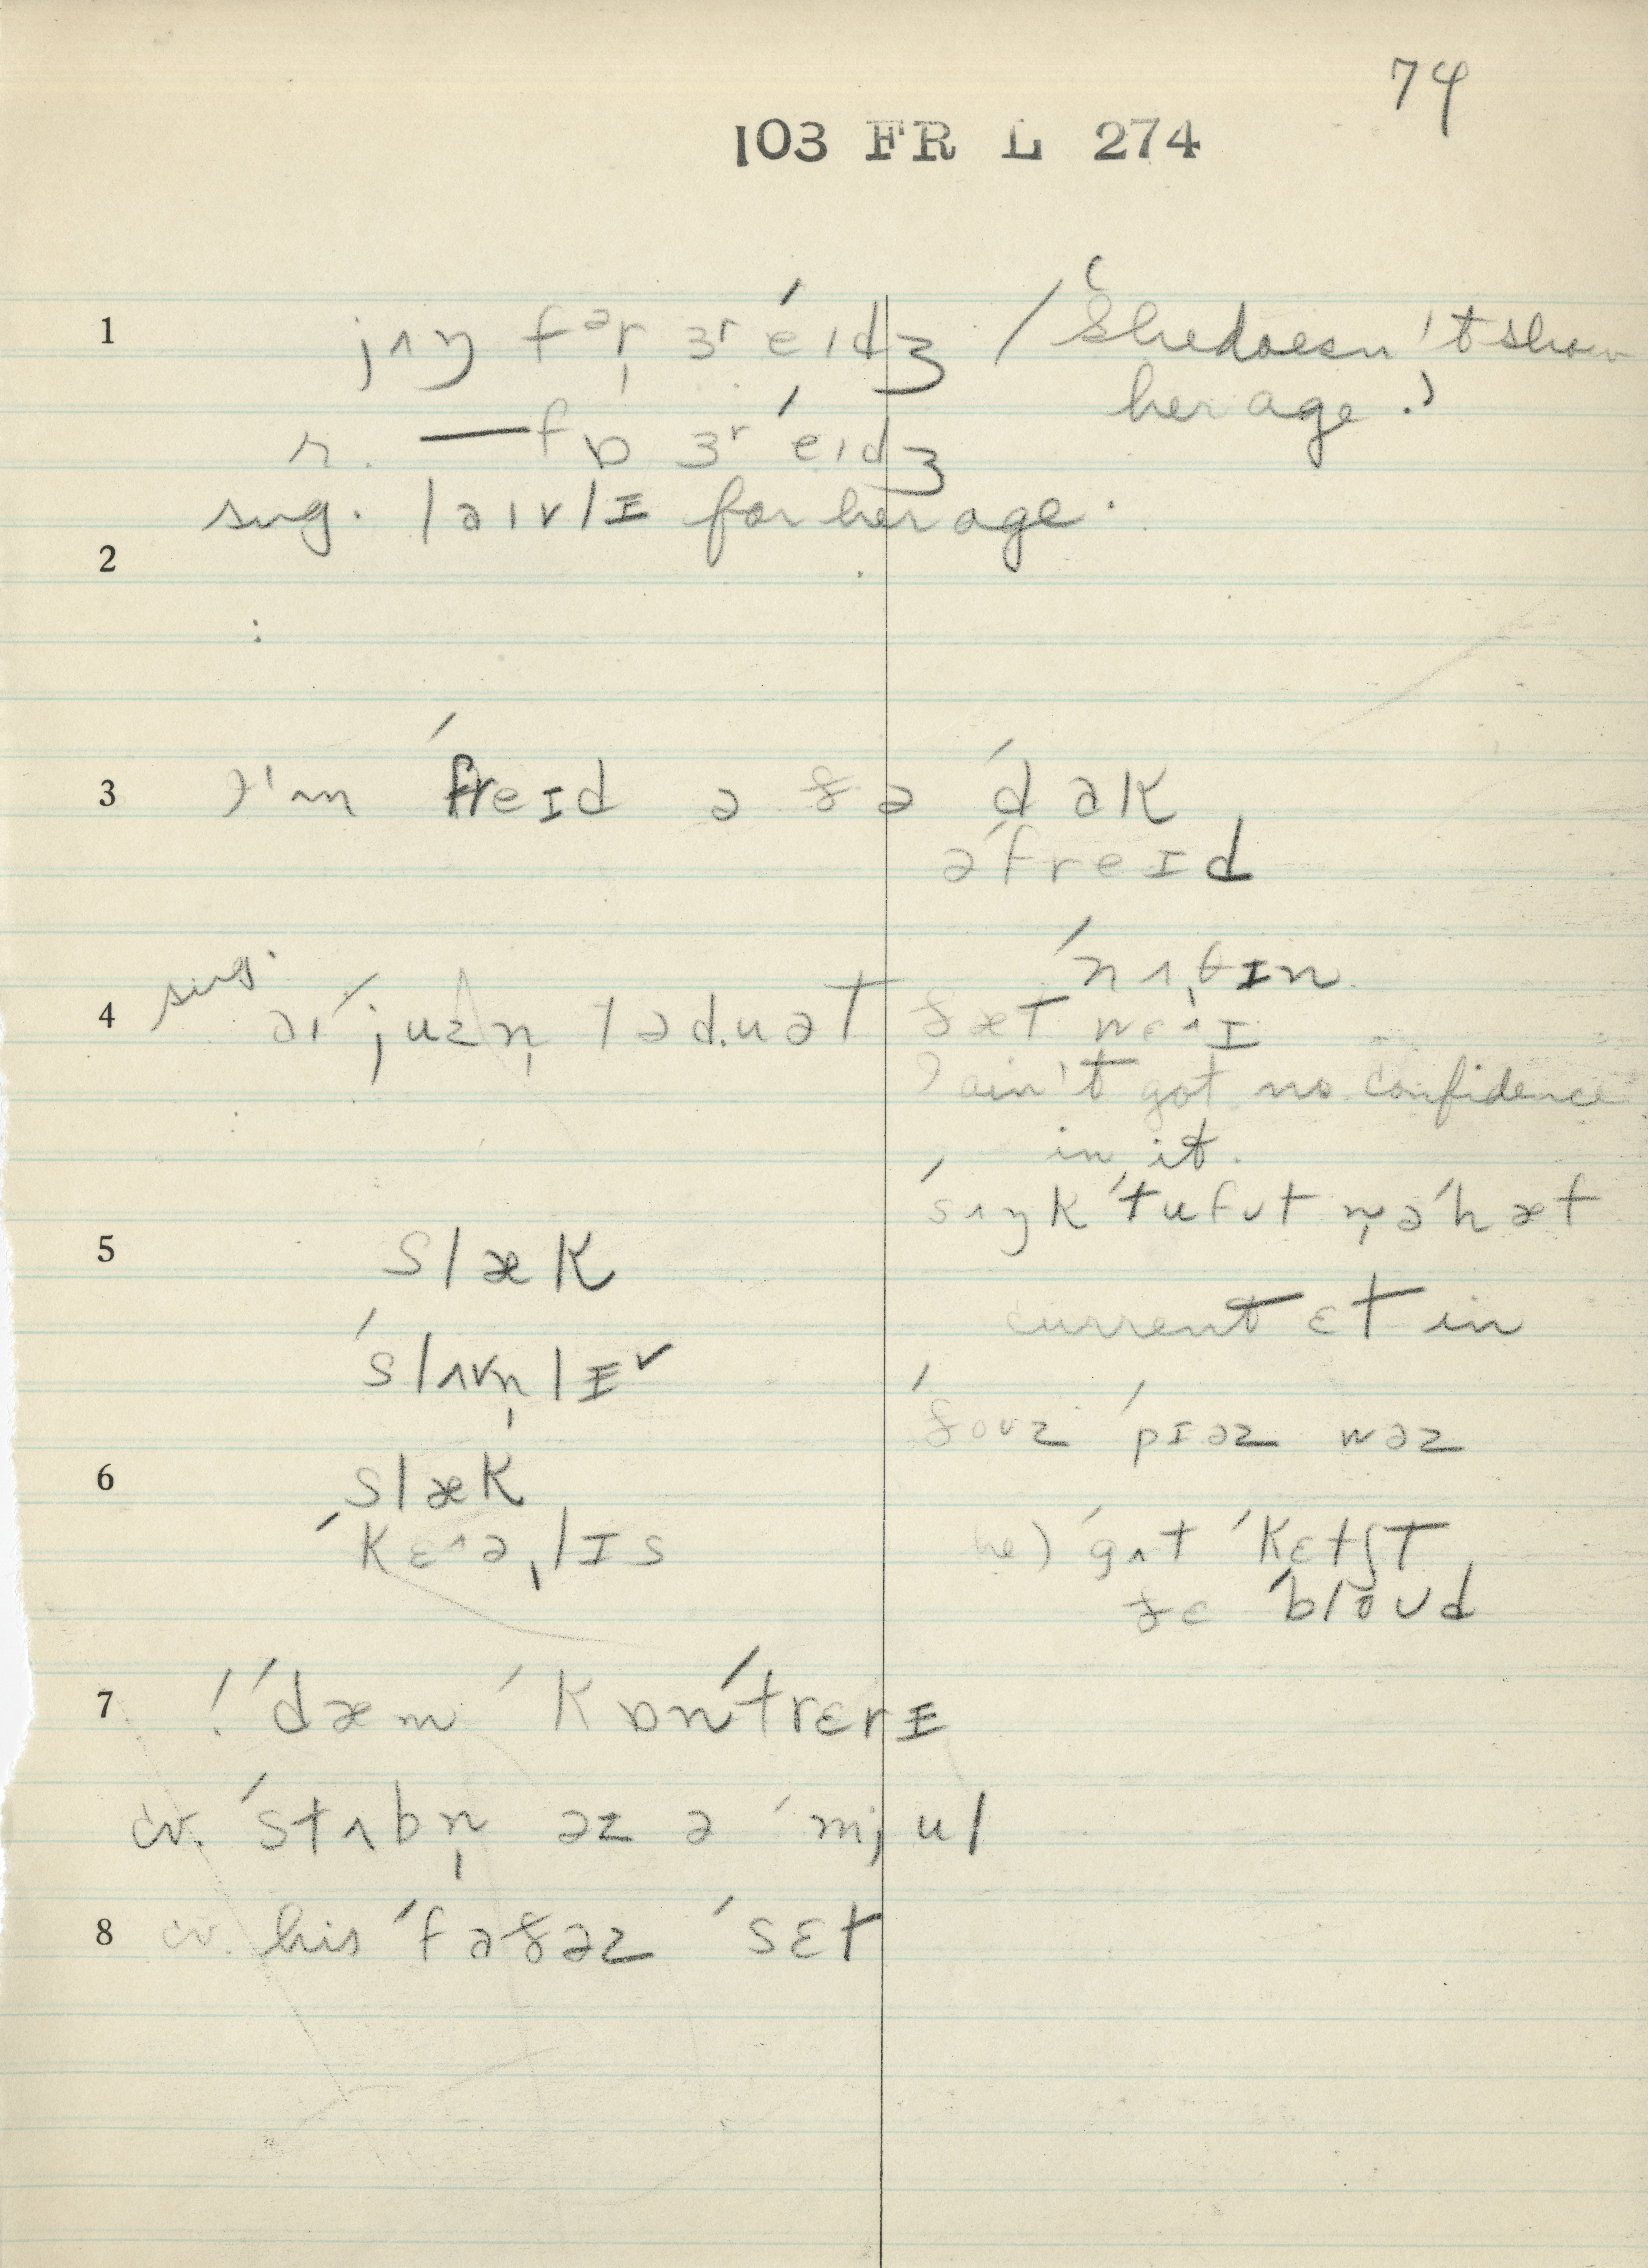 74
103 FR L 274
1 jʌŋ fər̩ ɜr ˈeɪdʒ / (She doesn't show
her age.)
r. — fɒ ɜr ˈeɪdʒ
sug. laɪvlɪ for her age.
2
3 I'm ˈfreɪd ə ðə ˈdak
əˈfreɪd
ˈnʌθɪn
4 sug. aɪ ˈjuzn̩ tə duət ðæt wɛᵊɪ
I ain't got no confidence
in it.
ˈsʌŋk ˈtu fʊt n̩ əˈhæf
5 slæk
current ɛt in
ˈslʌvn̩lɪ ✓
ˈðoʊz ˈpɪəz wəz
6 slæk
ˈkɛᵊə,lɪs
he) ˈgʌt ˈkɛtʃt
ðɛ ˈbloʊd
7 ! ˈdæm ˈkɒnˈtrɛrɪ
cv. ˈstʌbn̩ əz ə ˈmjul
8 cv. his ˈfaðəz ˈsɛt